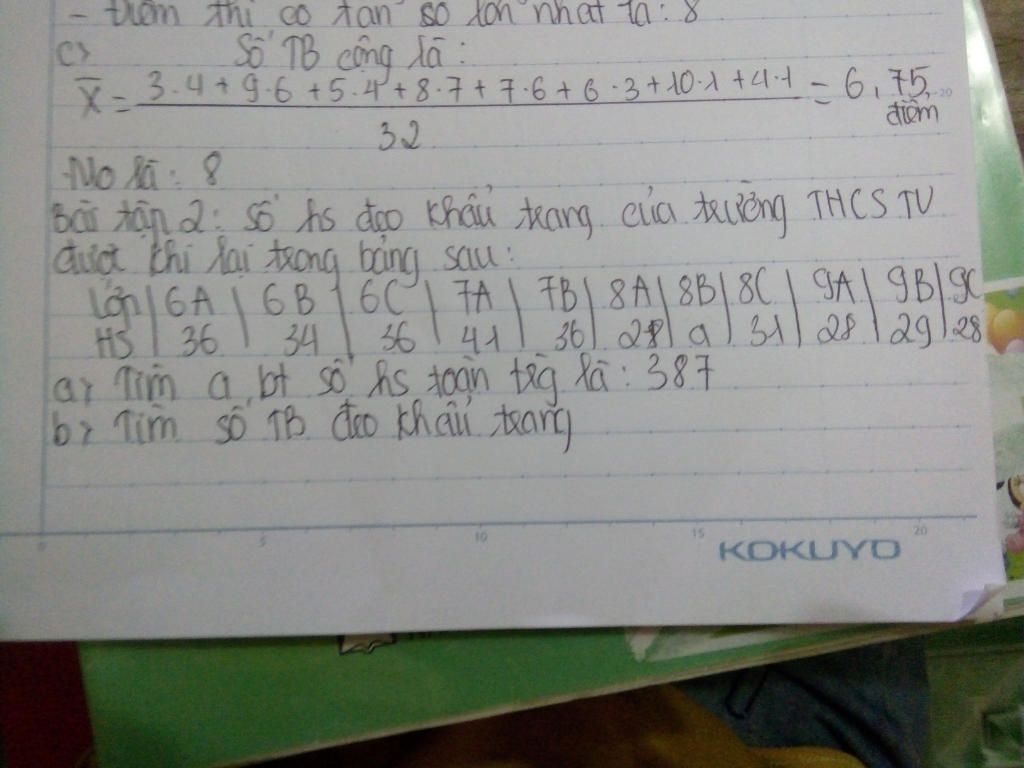 - Điểm thi có tần số lớn nhất là: 8
c> Số TB cộng là:
X̄ = 3.4 + 9.6 + 5.4 + 8.7 + 7.6 + 6.3 + 10.1 + 4.1 = 6,75
32
điểm
Mo là: 8
Bài tập 2: Số hs đeo khẩu trang của trường THCS TV
được khi lại trong bảng sau:
Lớp | 6A | 6B | 6C | 7A | 7B | 8A | 8B | 8C | 9A | 9B | 9C
HS | 36 | 34 | 36 | 41 | 36 | 28 | a | 31 | 28 | 29 | 28
a> Tìm a, bt số hs toàn trg là: 387
b> Tìm số TB đeo khẩu trang
0 5 10 15 20
KOKUYO